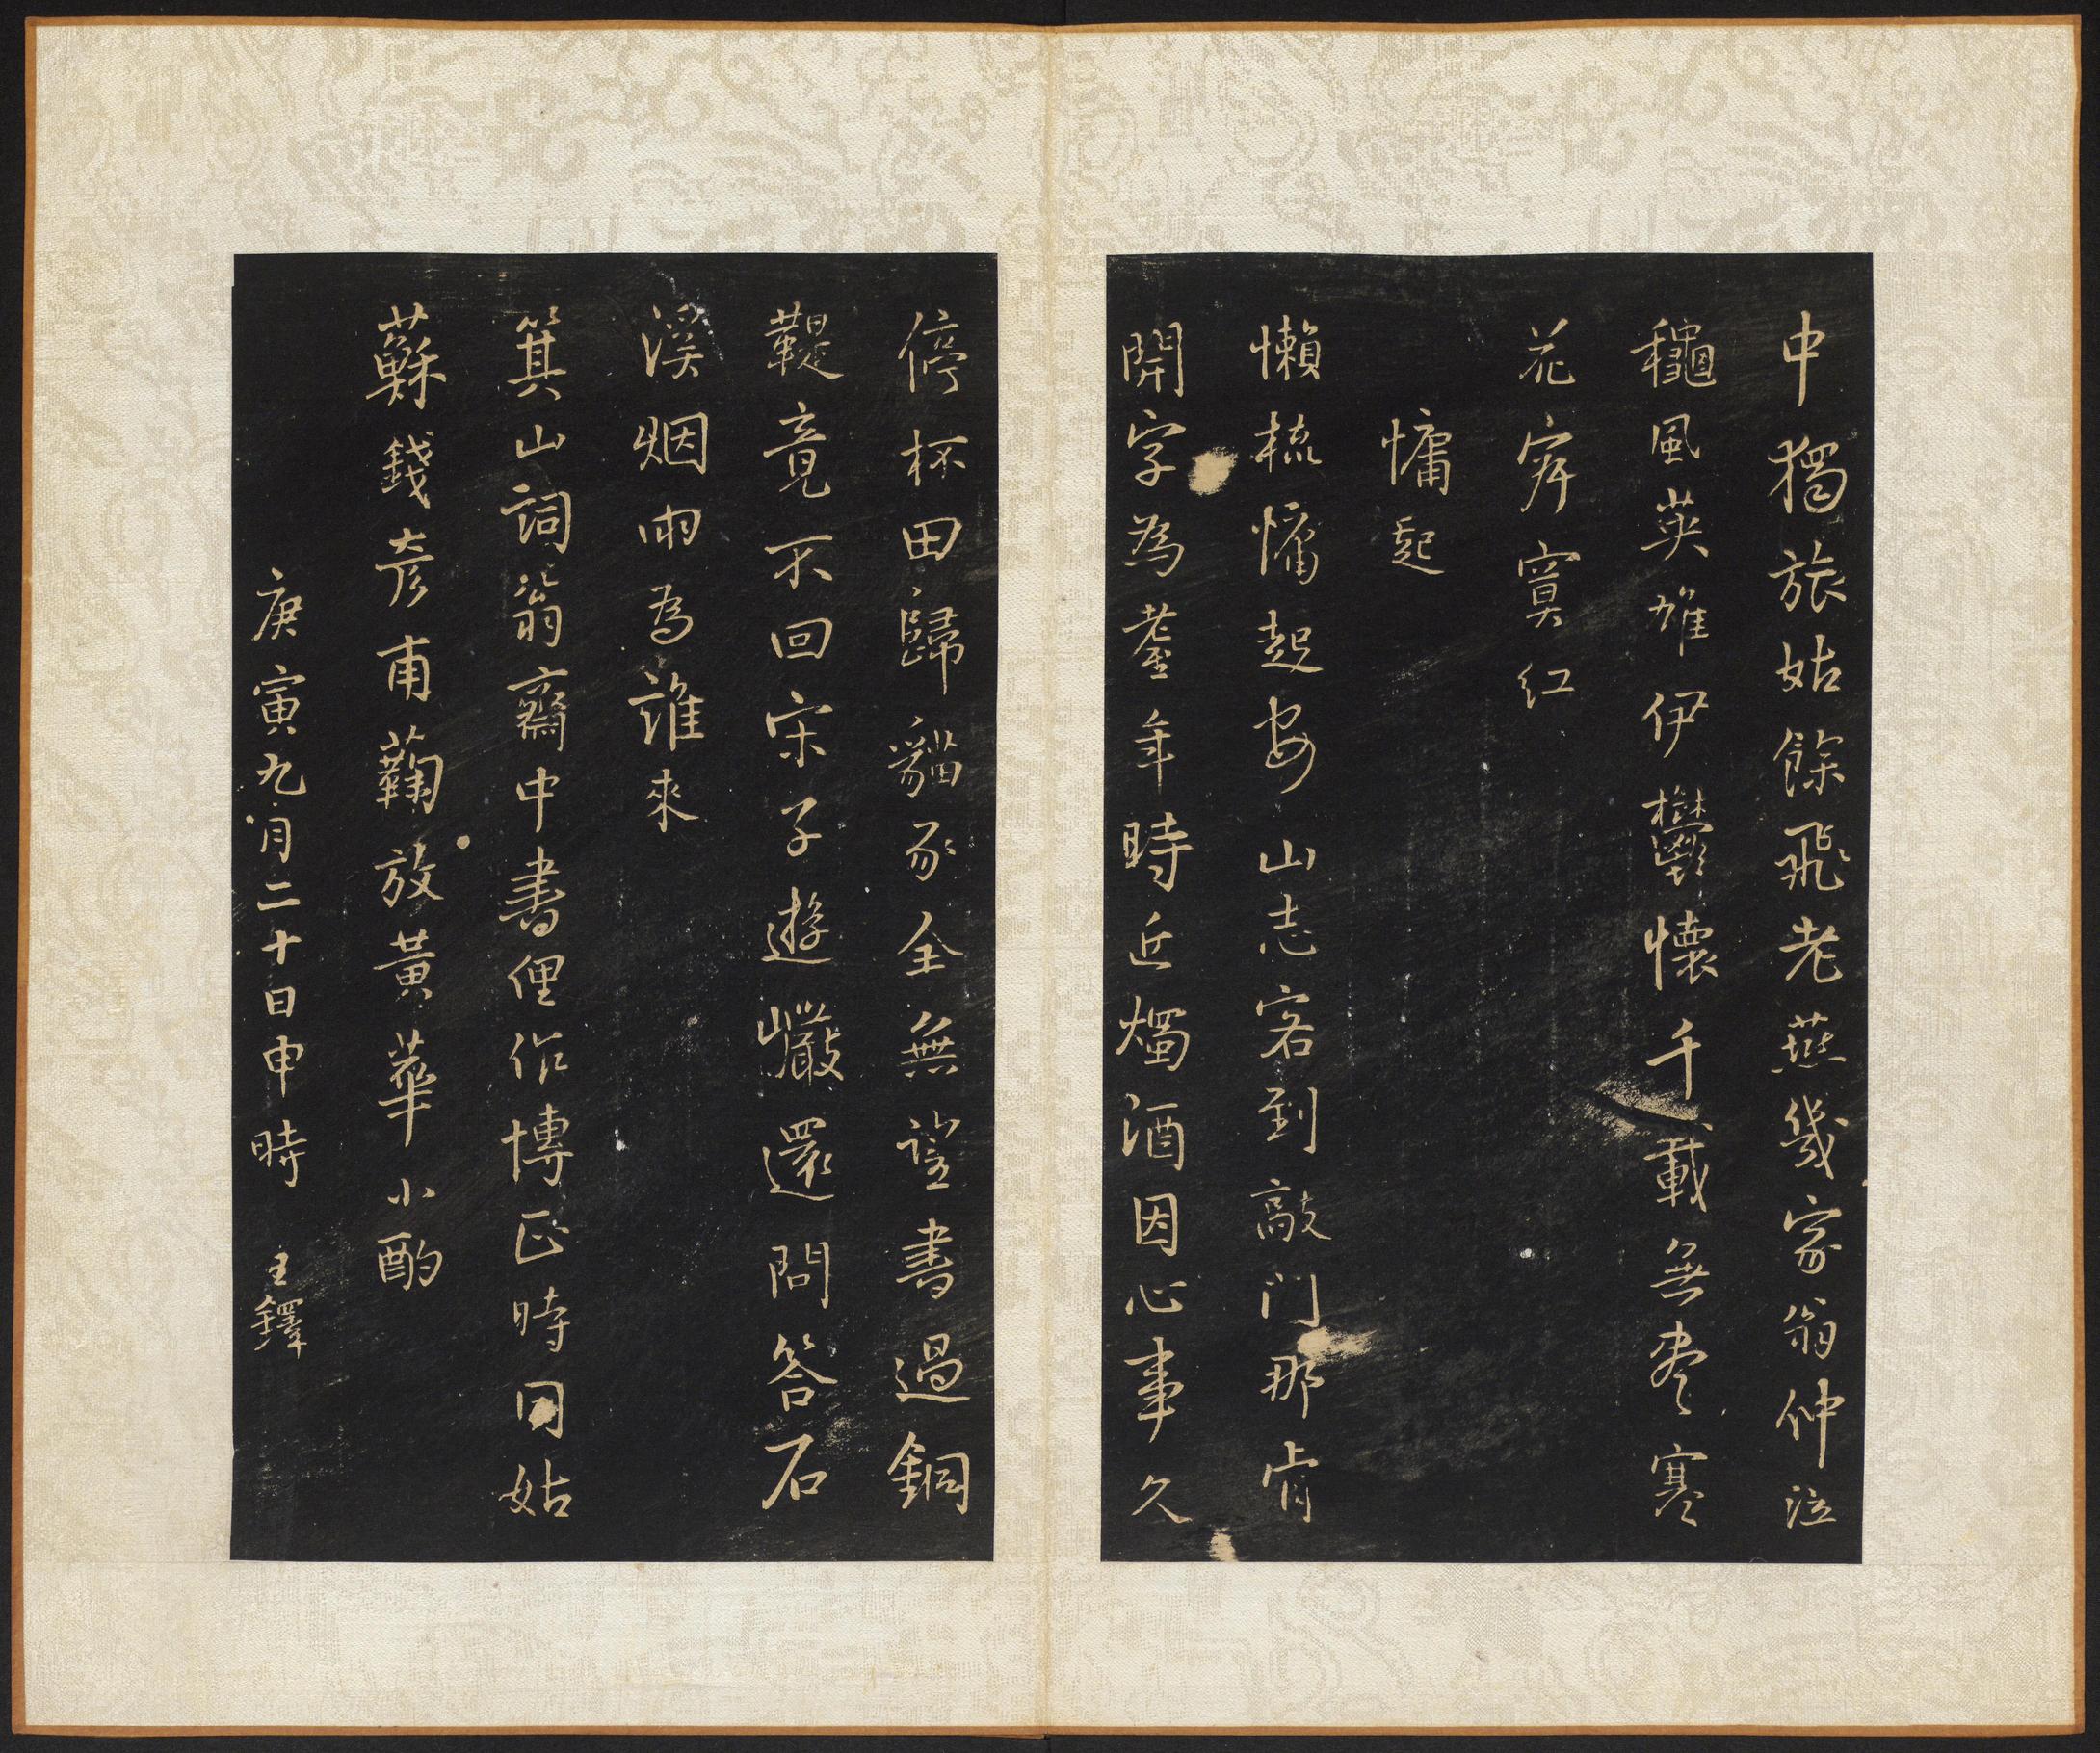 中獨旅姑餘飛老燕幾家翁仲泣
龝風英雄伊鬱懷千載無盡寒
花寂寞紅
慵起
懶梳慵起安山志客到敲門那肯
開字為耋年時近燭酒因心事久
停杯田歸貓豕全無證書過銅
鞮竟不回宋子遊巖還問答石
溪烟雨為誰來
箕山詞翁齋中書俚作博正時同姑
蘇錢彥甫蘜放黃華小酌
庚寅九月二十日申時 王鐸